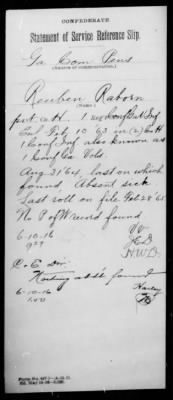 CONFEDERATE
Statement of Service Reference Slip.
Ga Com Pens
(Source of communication.)
Reuben Raborn
(Name.)
pvt co H. 1
Enl Feb 10 63 in (2) Co H
1 Conf Inf also known as
1 Conf Ga Vols.
Aug 31 '64 last on which
found, Absent sick
Last roll on file Feb 28 '65
No P of W record found
6-10-16
927
H.W.B.
C. E. Div
Nothing add'l found
6-10-16